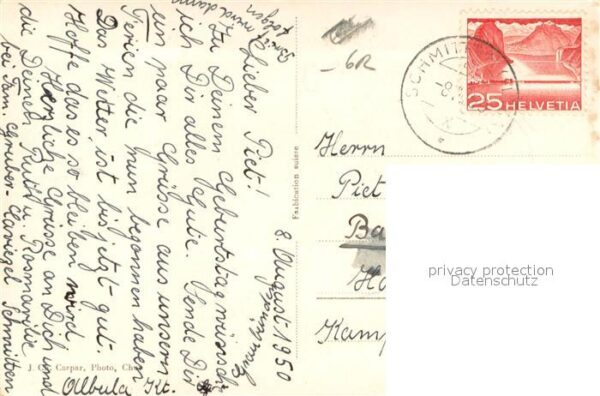 8. August 1950
Lieber Piet!
Zu Deinem Geburtstag wünsch
ich Dir alles Gute. Sende Dir
ein paar Grüsse aus unsern
Ferien die nun begonnen haben
Das Wetter ist bis jetzt gut.
Hoffe das es so bleiben wird
Herzliche Grüsse an Dich und
die Deinen Ruth u. Rosmarie
bei Fam. Gruber- Schmitten
Albula Kt.
folgen
J. Caspar, Photo, Ch
Fabrication suisse
6R
SCHMITT
25 HELVETIA
Herrn
Piet
Ba
Ho
Kamp
privacy protection
Datenschutz